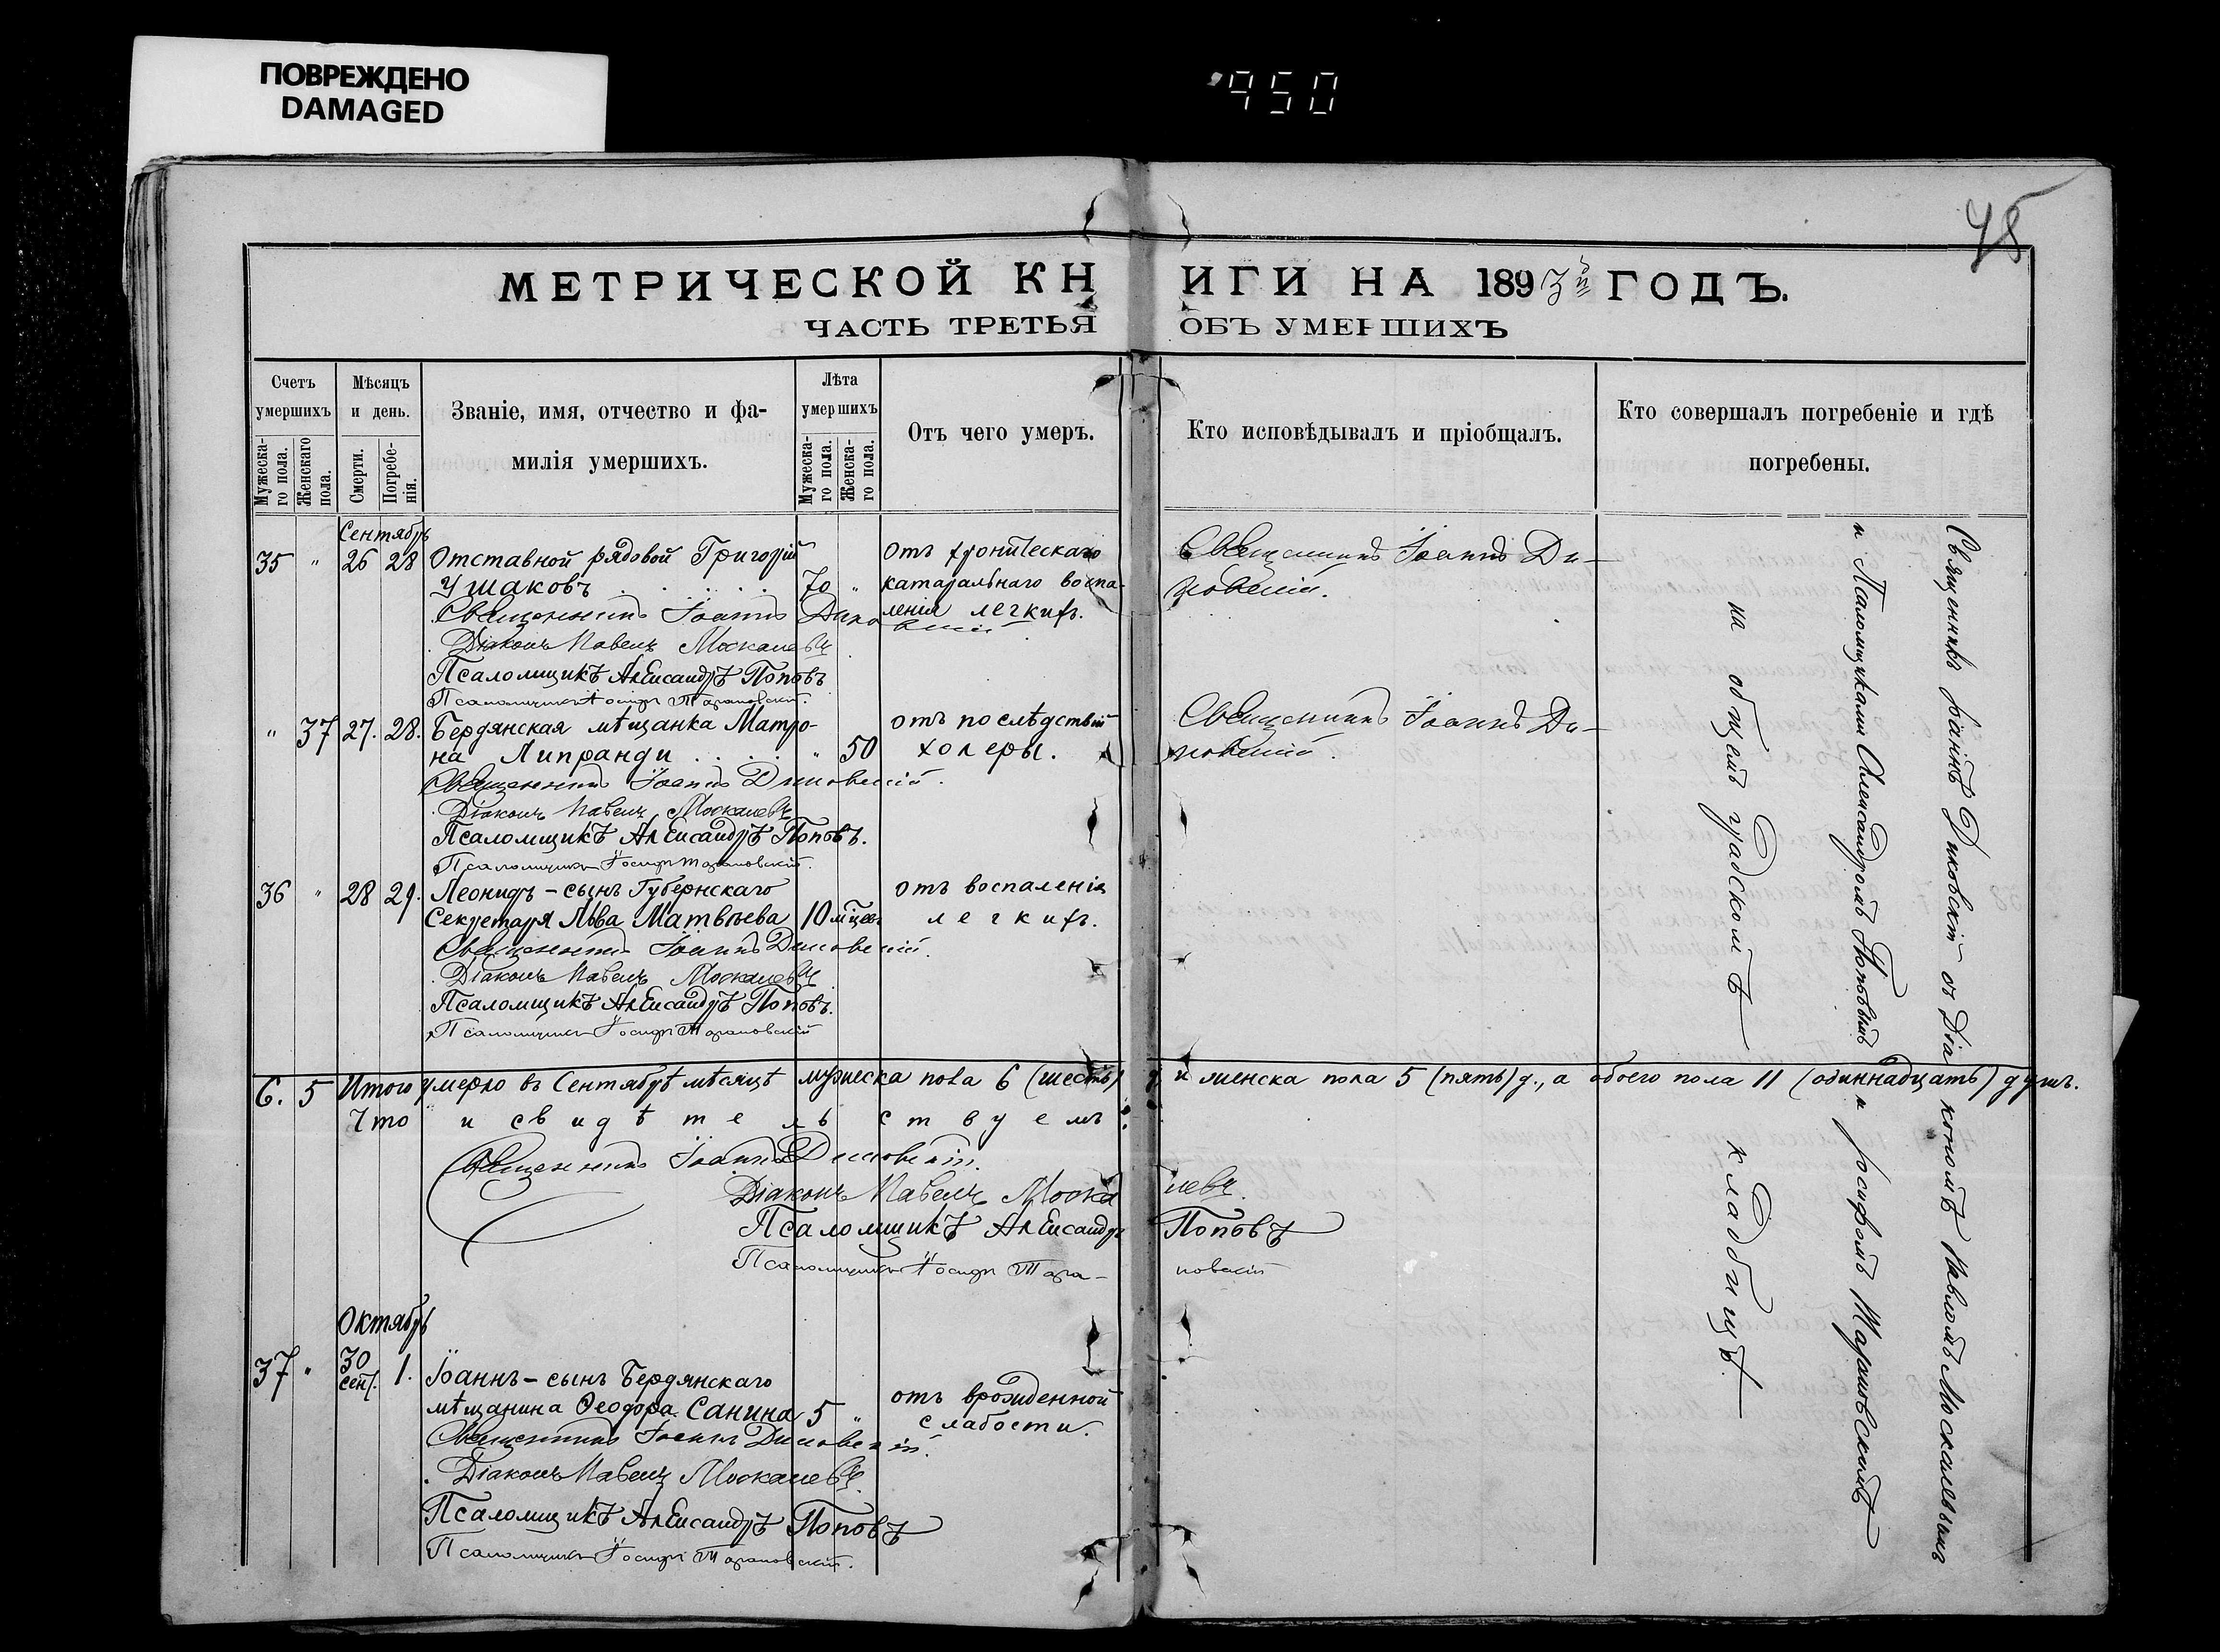 ПОВРЕЖДЕНО
DAMAGED
950
48
МЕТРИЧЕСКОЙ КНИГИ НА 1893й ГОДЪ.
ЧАСТЬ ТРЕТЬЯ ОБЪ УМЕРШИХЪ
Счетъ умершихъ
Мужескаго пола.
Женскаго пола.
Мѣсяцъ и день.
Смерти.
Погребенія.
Званіе, имя, отчество и фамилія умершихъ.
Лѣта умершихъ
Мужескаго пола.
Женскаго пола.
Отъ чего умеръ.
Кто исповѣдывалъ и пріобщалъ.
Кто совершалъ погребеніе и гдѣ погребены.
Сентябрь
35 " 26 28 Отставной рядовой Григорій отъ хроническаго Священникъ Іоаннъ Ди-
Ушаковъ . . . . . . 70 " катаральнаго воспа- ковскій.
ленія легкихъ.
Священникъ Іоаннъ Диковскій
Діаконъ Павелъ Москалевъ
Псаломщикъ Александръ Поповъ
Псаломщикъ Іосифъ Тарановскій.
" 37 27. 28. Бердянская мѣщанка Матро- отъ послѣдствій Священникъ Іоаннъ Ди-
на Липранди . . . . " 50 холеры. ковскій.
Священникъ Іоаннъ Диковскій.
Діаконъ Павелъ Москалевъ
Псаломщикъ Александръ Поповъ.
Псаломщикъ Іосифъ Тарановскій.
36 " 28 29. Леонидъ - сынъ Губернскаго отъ воспаленія
Секретаря Льва Матвѣева 10 м-цевъ легкихъ.
Священникъ Іоаннъ Диковскій.
Діаконъ Павелъ Москалевъ
Псаломщикъ Александръ Поповъ.
Псаломщикъ Іосифъ Тарановскій
6. 5 Итого умерло въ Сентябрѣ мѣсяцѣ мужеска пола 6 (шесть) д. и женска пола 5 (пять) д., а обоего пола 11 (одиннадцать) душъ.
Что и свидѣтельствуемъ:
Священникъ Іоаннъ Диковскій.
Діаконъ Павелъ Москалевъ.
Псаломщикъ Александръ Поповъ
Псаломщикъ Іосифъ Тарановскій
Октябрь
37 " 30 сент. 1. Іоаннъ - сынъ Бердянскаго
мѣщанина Ѳеодора Санина 5 " отъ врожденной
слабости.
Священникъ Іоаннъ Диковскій.
Діаконъ Павелъ Москалевъ.
Псаломщикъ Александръ Поповъ
Псаломщикъ Іосифъ Тарановскій.
Священникъ Іоаннъ Диковскій съ Діакономъ Павломъ Москалевымъ
и Псаломщиками Александромъ Поповымъ и Іосифомъ Тарановскимъ
на общемъ градскомъ кладбищѣ